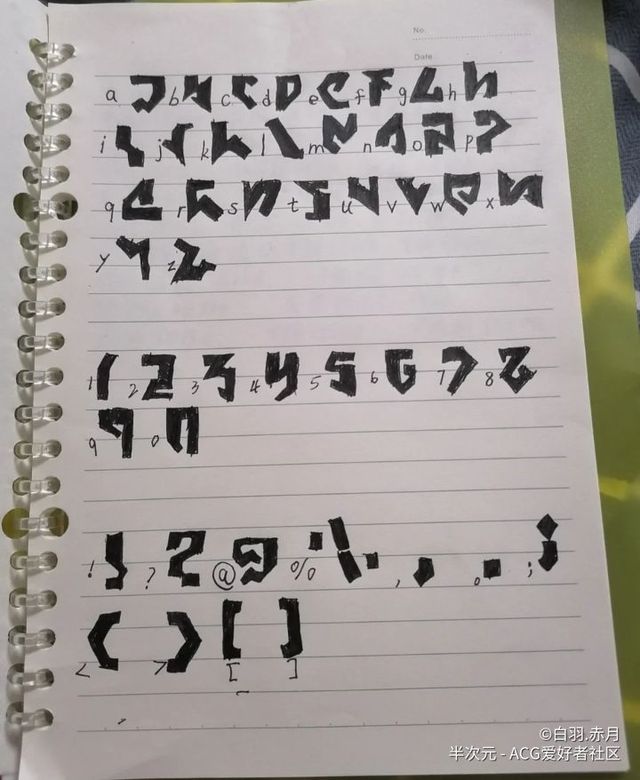 No.
Date
a b c d e f g h
i j k l m n o p
q r s t u v w x
y z
1 2 3 4 5 6 7 8
9 0
! ? @ % , 。 ;
< > [ ]
©白羽.赤月
半次元 - ACG爱好者社区